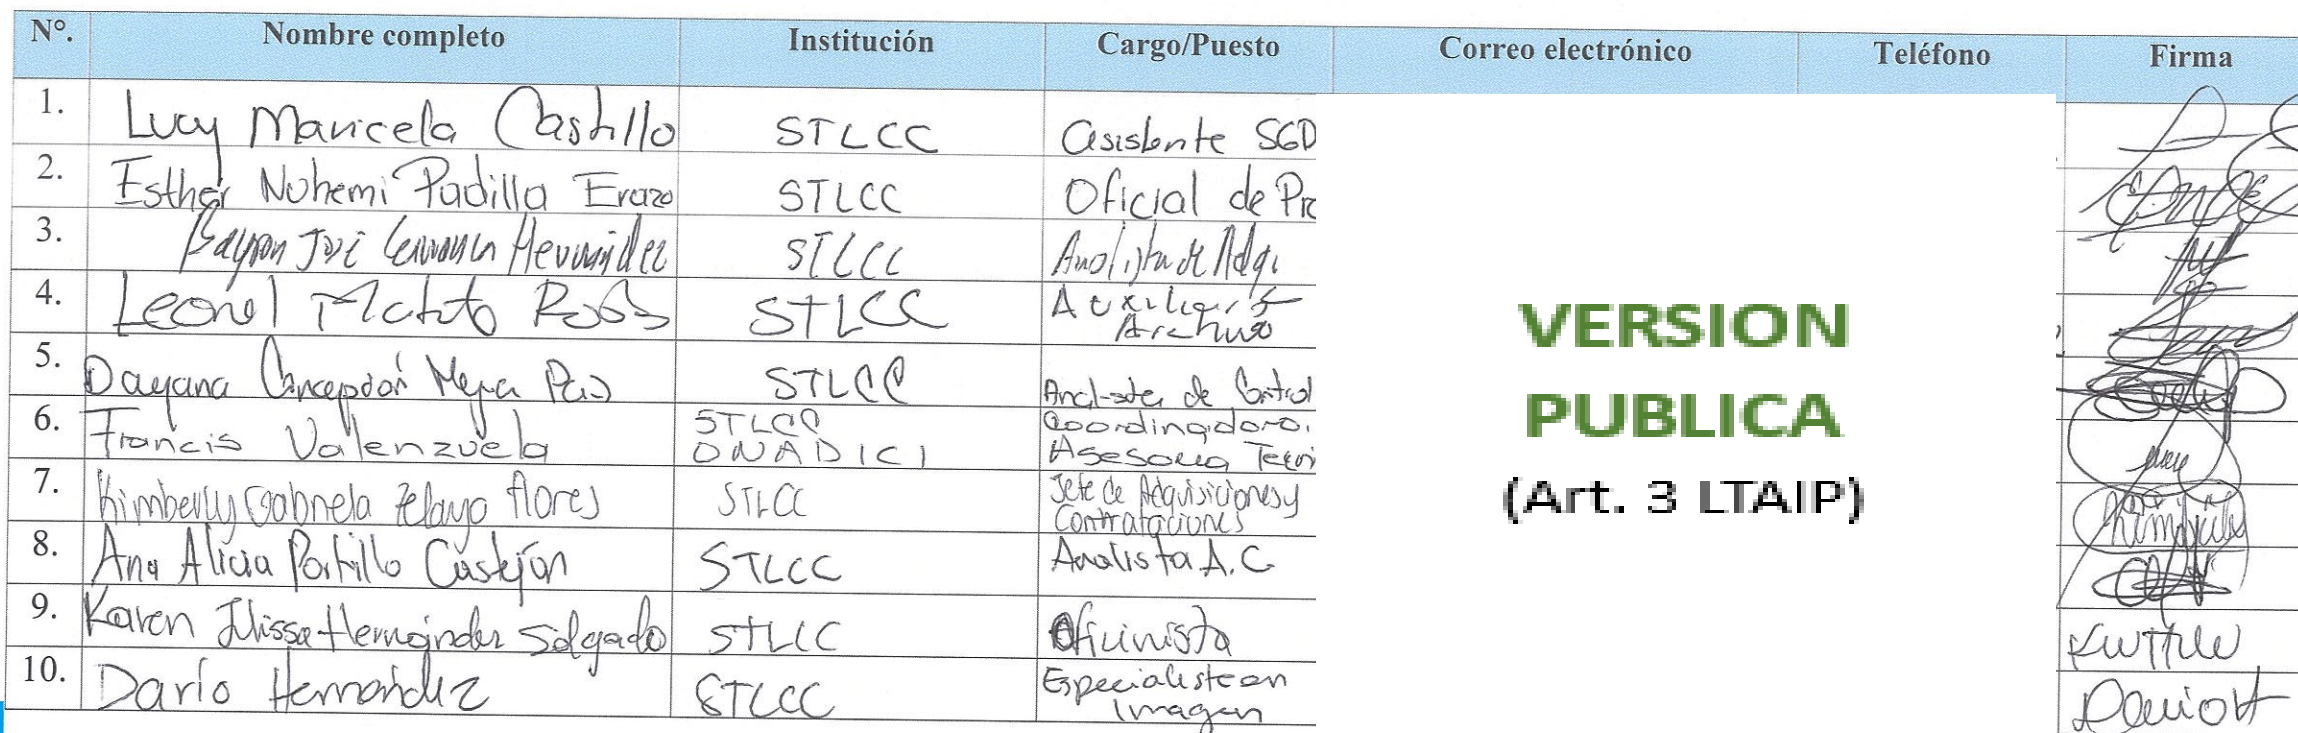 N°. Nombre completo Institución Cargo/Puesto Correo electrónico Teléfono Firma
1. Lucy Maricela Castillo STLCC asistente SGD
2. Esther Nohemi Padilla Erazo STLCC Oficial de Pro
3. Bayron José Hernández STLCC Analista de Adqi
4. Leonel STLCC Auxiliar
Archivo
5. Dayana Concepción Mejia Paz STLCC Analista de Control
6. Francis Valenzuela STLCC Coordinadora.
ONADICI Asesoria Tecni
7. Kimberly Gabriela Zelaya flores STLCC Jefe de Adquisiciones y
Contrataciones
8. Ana Alicia Portillo Castejón STLCC Analista A.C
9. Karen Julissa Hernández Salgado STLCC Oficinista
10. Darío Hernández STLCC Especialista en
Imagen
VERSION
PUBLICA
(Art. 3 LTAIP)